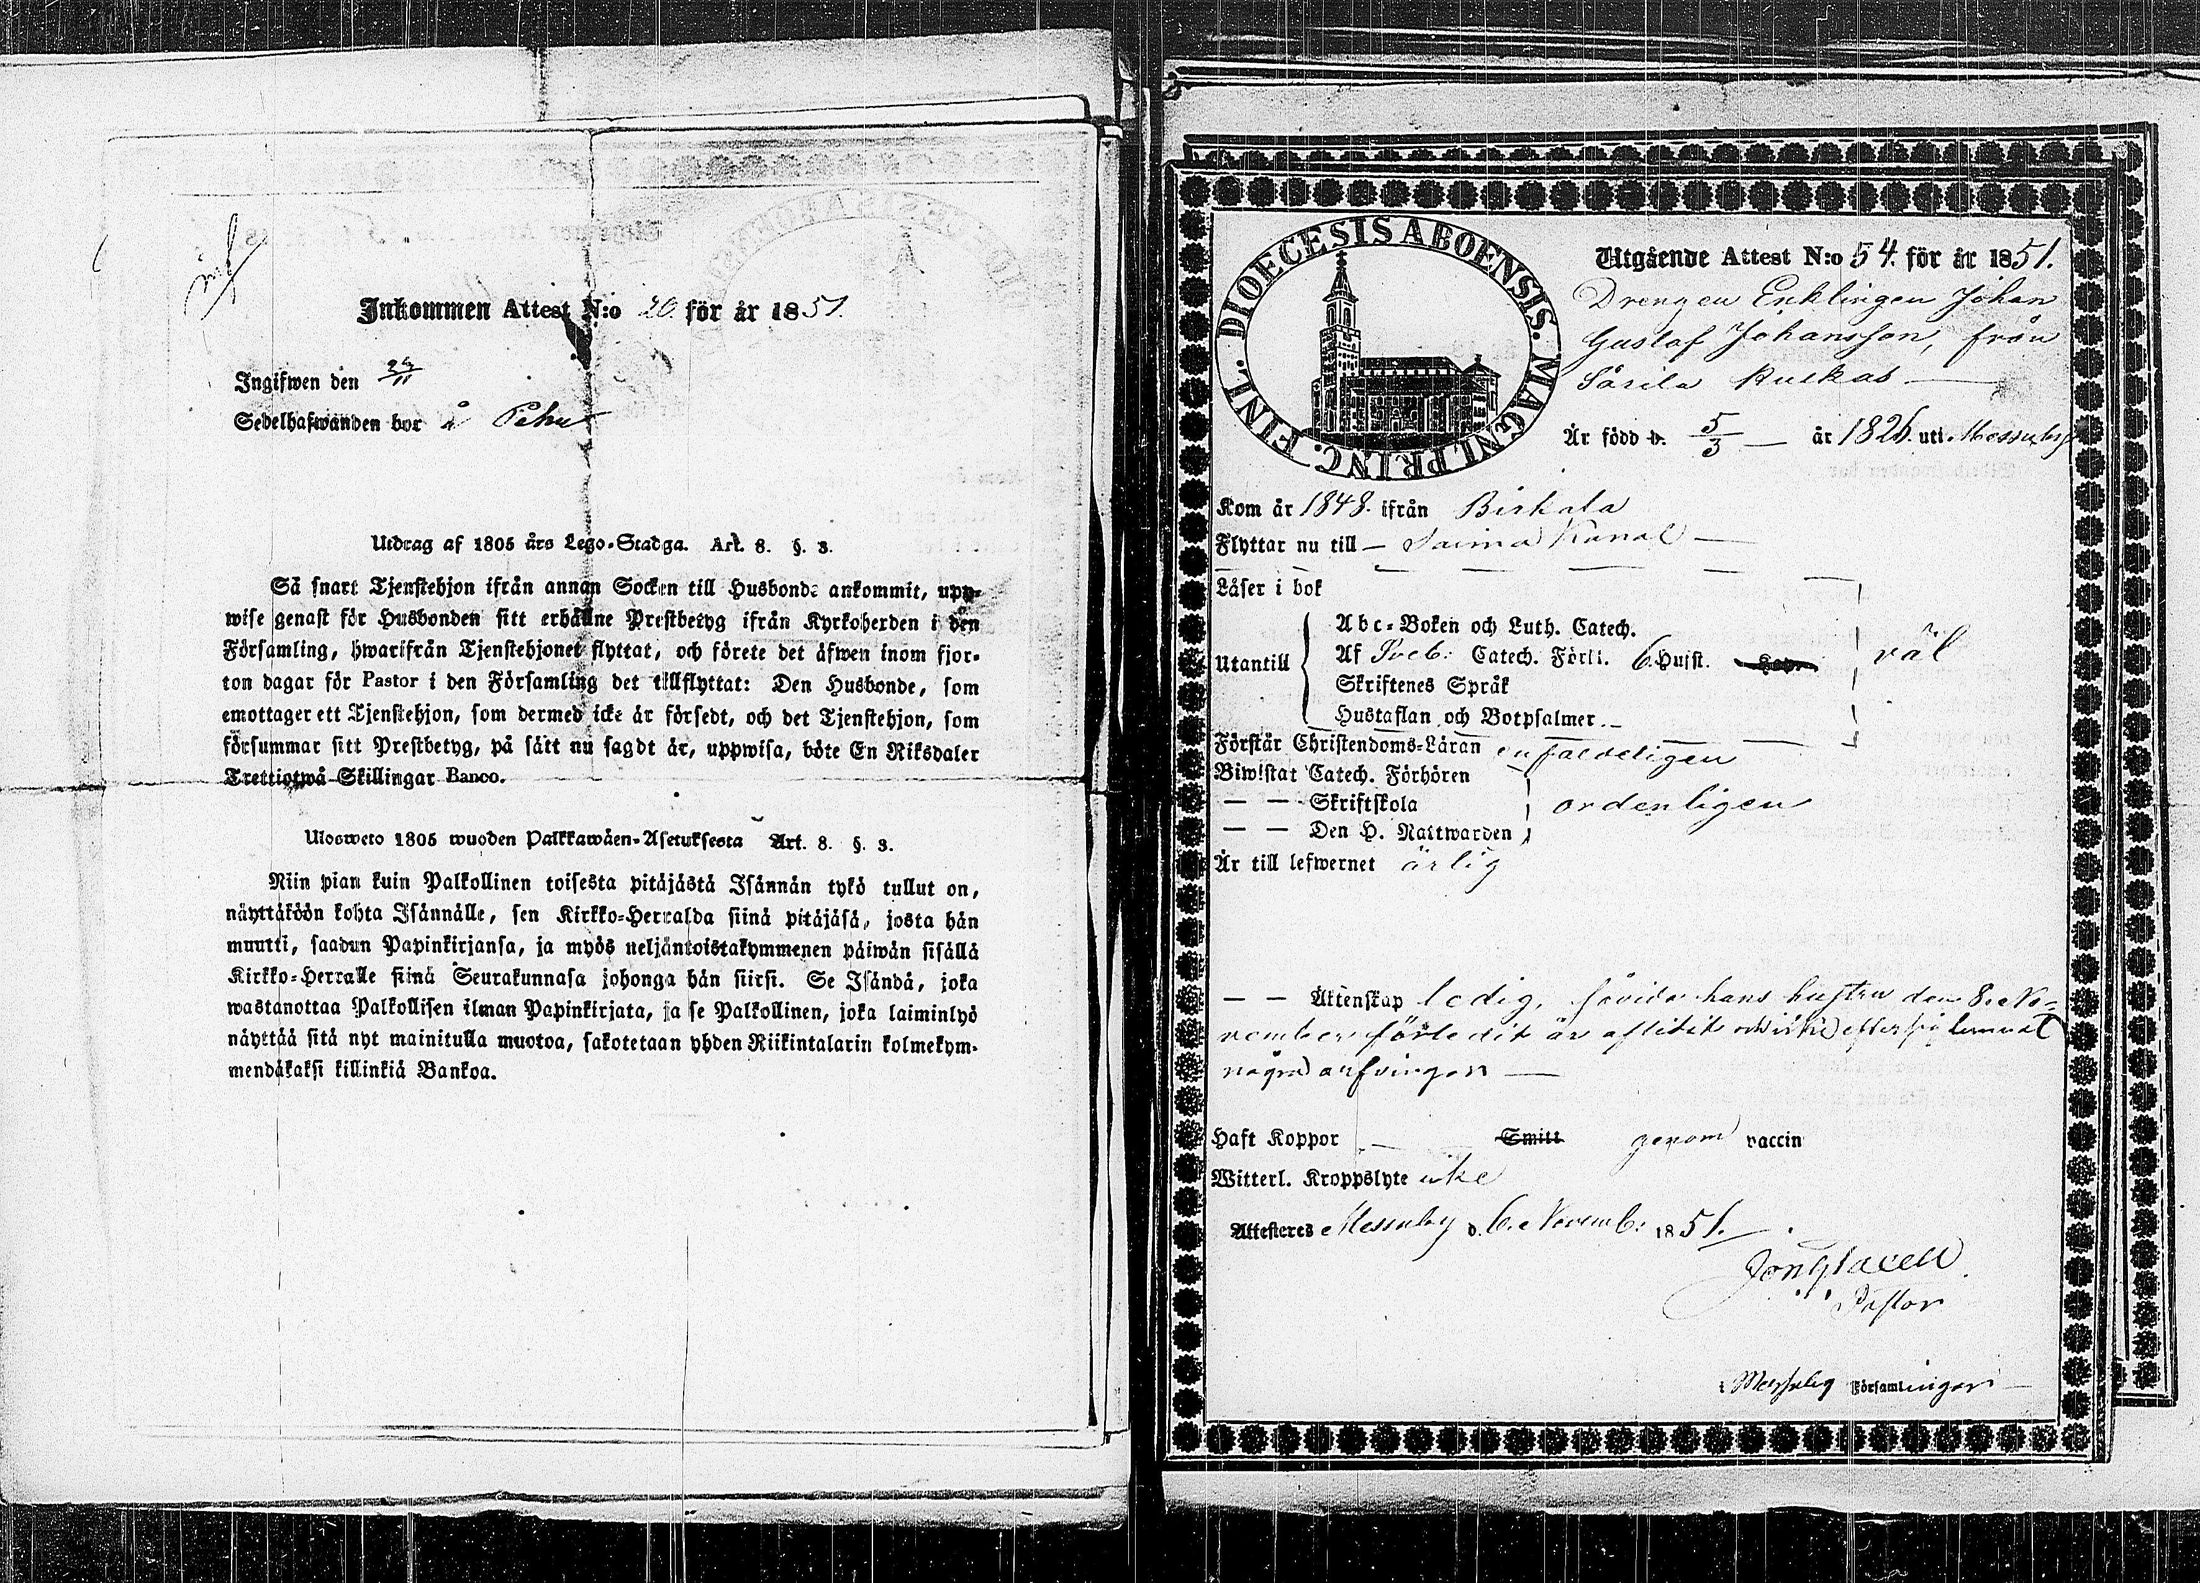 Inkommen Attest N:o 20. för år 1851.
Ingifwen den 29/11
Sedelhafwanden bor å Pehu
Utdrag af 1805 års Lego-Stadga. Art. 8. §. 3.
Så snart Tjenstehjon ifrån annan Socken till Husbonde ankommit, upp-
wise genast för Husbonden sitt erhållne Prestbetyg ifrån Kyrkoherden i den
Församling, hwarifrån Tjenstehjonet flyttat, och förete det äfwen inom fjor-
ton dagar för Pastor i den Församling det tillflyttat: Den Husbonde, som
emottager ett Tjenstehjon, som dermed icke är försedt, och det Tjenstehjon, som
försummar sitt Prestbetyg, på sätt nu sagdt är, uppwisa, böte En Riksdaler
Trettiotwå Skillingar Banco.
Ulosweto 1805 wuoden Palkkawäen-Asetuksesta Art. 8. §. 3.
Niin pian kuin Palkollinen toisesta pitäjästä Isännän tykö tullut on,
näyttäköön kohta Isännälle, sen Kirkko-Herralda siinä pitäjäsä, josta hän
muutti, saadun Papinkirjansa, ja myös neljäntoistakymmenen päiwän sisällä
Kirkko-Herralle siinä Seurakunnasa johonga hän siirsi. Se Isändä, joka
wastanottaa Palkollisen ilman Papinkirjata, ja se Palkollinen, joka laiminlyö
näyttää sitä nyt mainitulla muotoa, sakotetaan yhden Riikintalarin kolmekym-
mendäkaksi killinkiä Bankoa.
DIOECESIS ABOENSIS. MAGNI. PRINC. FINL.
Utgående Attest N:o 54. för år 1851.
Drengen Enklingen Johan
Gustaf Johansson, från
Sårila Kuckas
Är född d. 5/3 år 1826. uti Messuby
Kom år 1848. ifrån Birkala
Flyttar nu till Saima Kanal
Läser i bok
Abc-Boken och Luth. Catech.
Utantill Af Sveb: Catech. Förkl. 6. Hufst. väl
Skriftenes Språk
Hustaflan och Botpsalmer.
Förstår Christendoms-Läran enfaldeligen
Biwistat Catech. Förhören
— — Skriftskola ordenligen
— — Den H. Nattwarden
Är till lefwernet ärlig
— — Äktenskap ledig, såvida hans hustru den 8. No-
vember förledit år aflidit och icke efter sig lemnat
några arfvingar
Haft Koppor — Smitt genom vaccin
Witterl. Kroppslyte icke
Attesteres Messuby d. 6. Novemb: 1851.
Jon Glacell
Pastor
i Messuby Församlingen